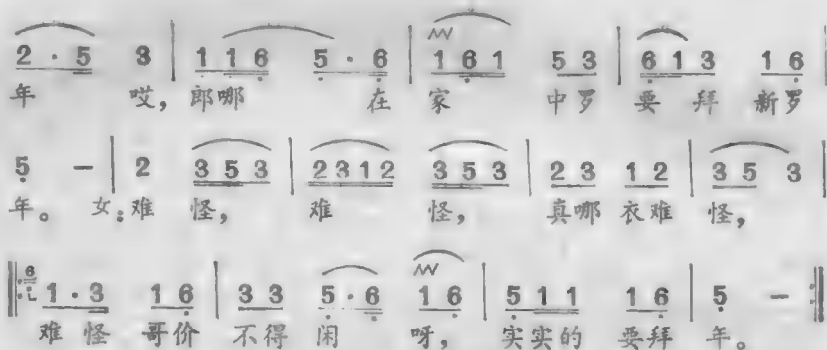 2·5 3 | 1 1 6 5·6 | 1 6 1 5 3 | 6 1 3 1 6 |
年 哎, 郎哪 在 家 中罗 要 拜 新罗
5 — | 2 3 5 3 | 2 3 1 2 3 5 3 | 2 3 1 2 | 3 5 3 |
年。 女:难 怪, 难 怪, 真哪 衣难 怪,
‖: 6 1·3 1 6 | 3 3 5·6 1 6 | 5 1 1 1 6 | 5 — :‖
难 怪 哥价 不得 闲 呀, 实实的 要拜 年。